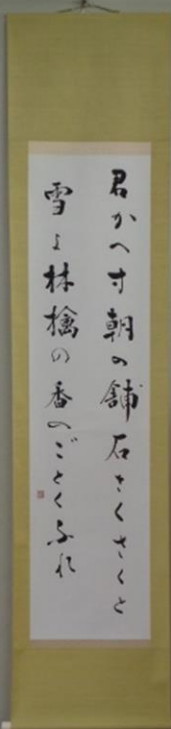 君かへす朝の舗石さくさくと
雪よ林檎の香のごとくふれ